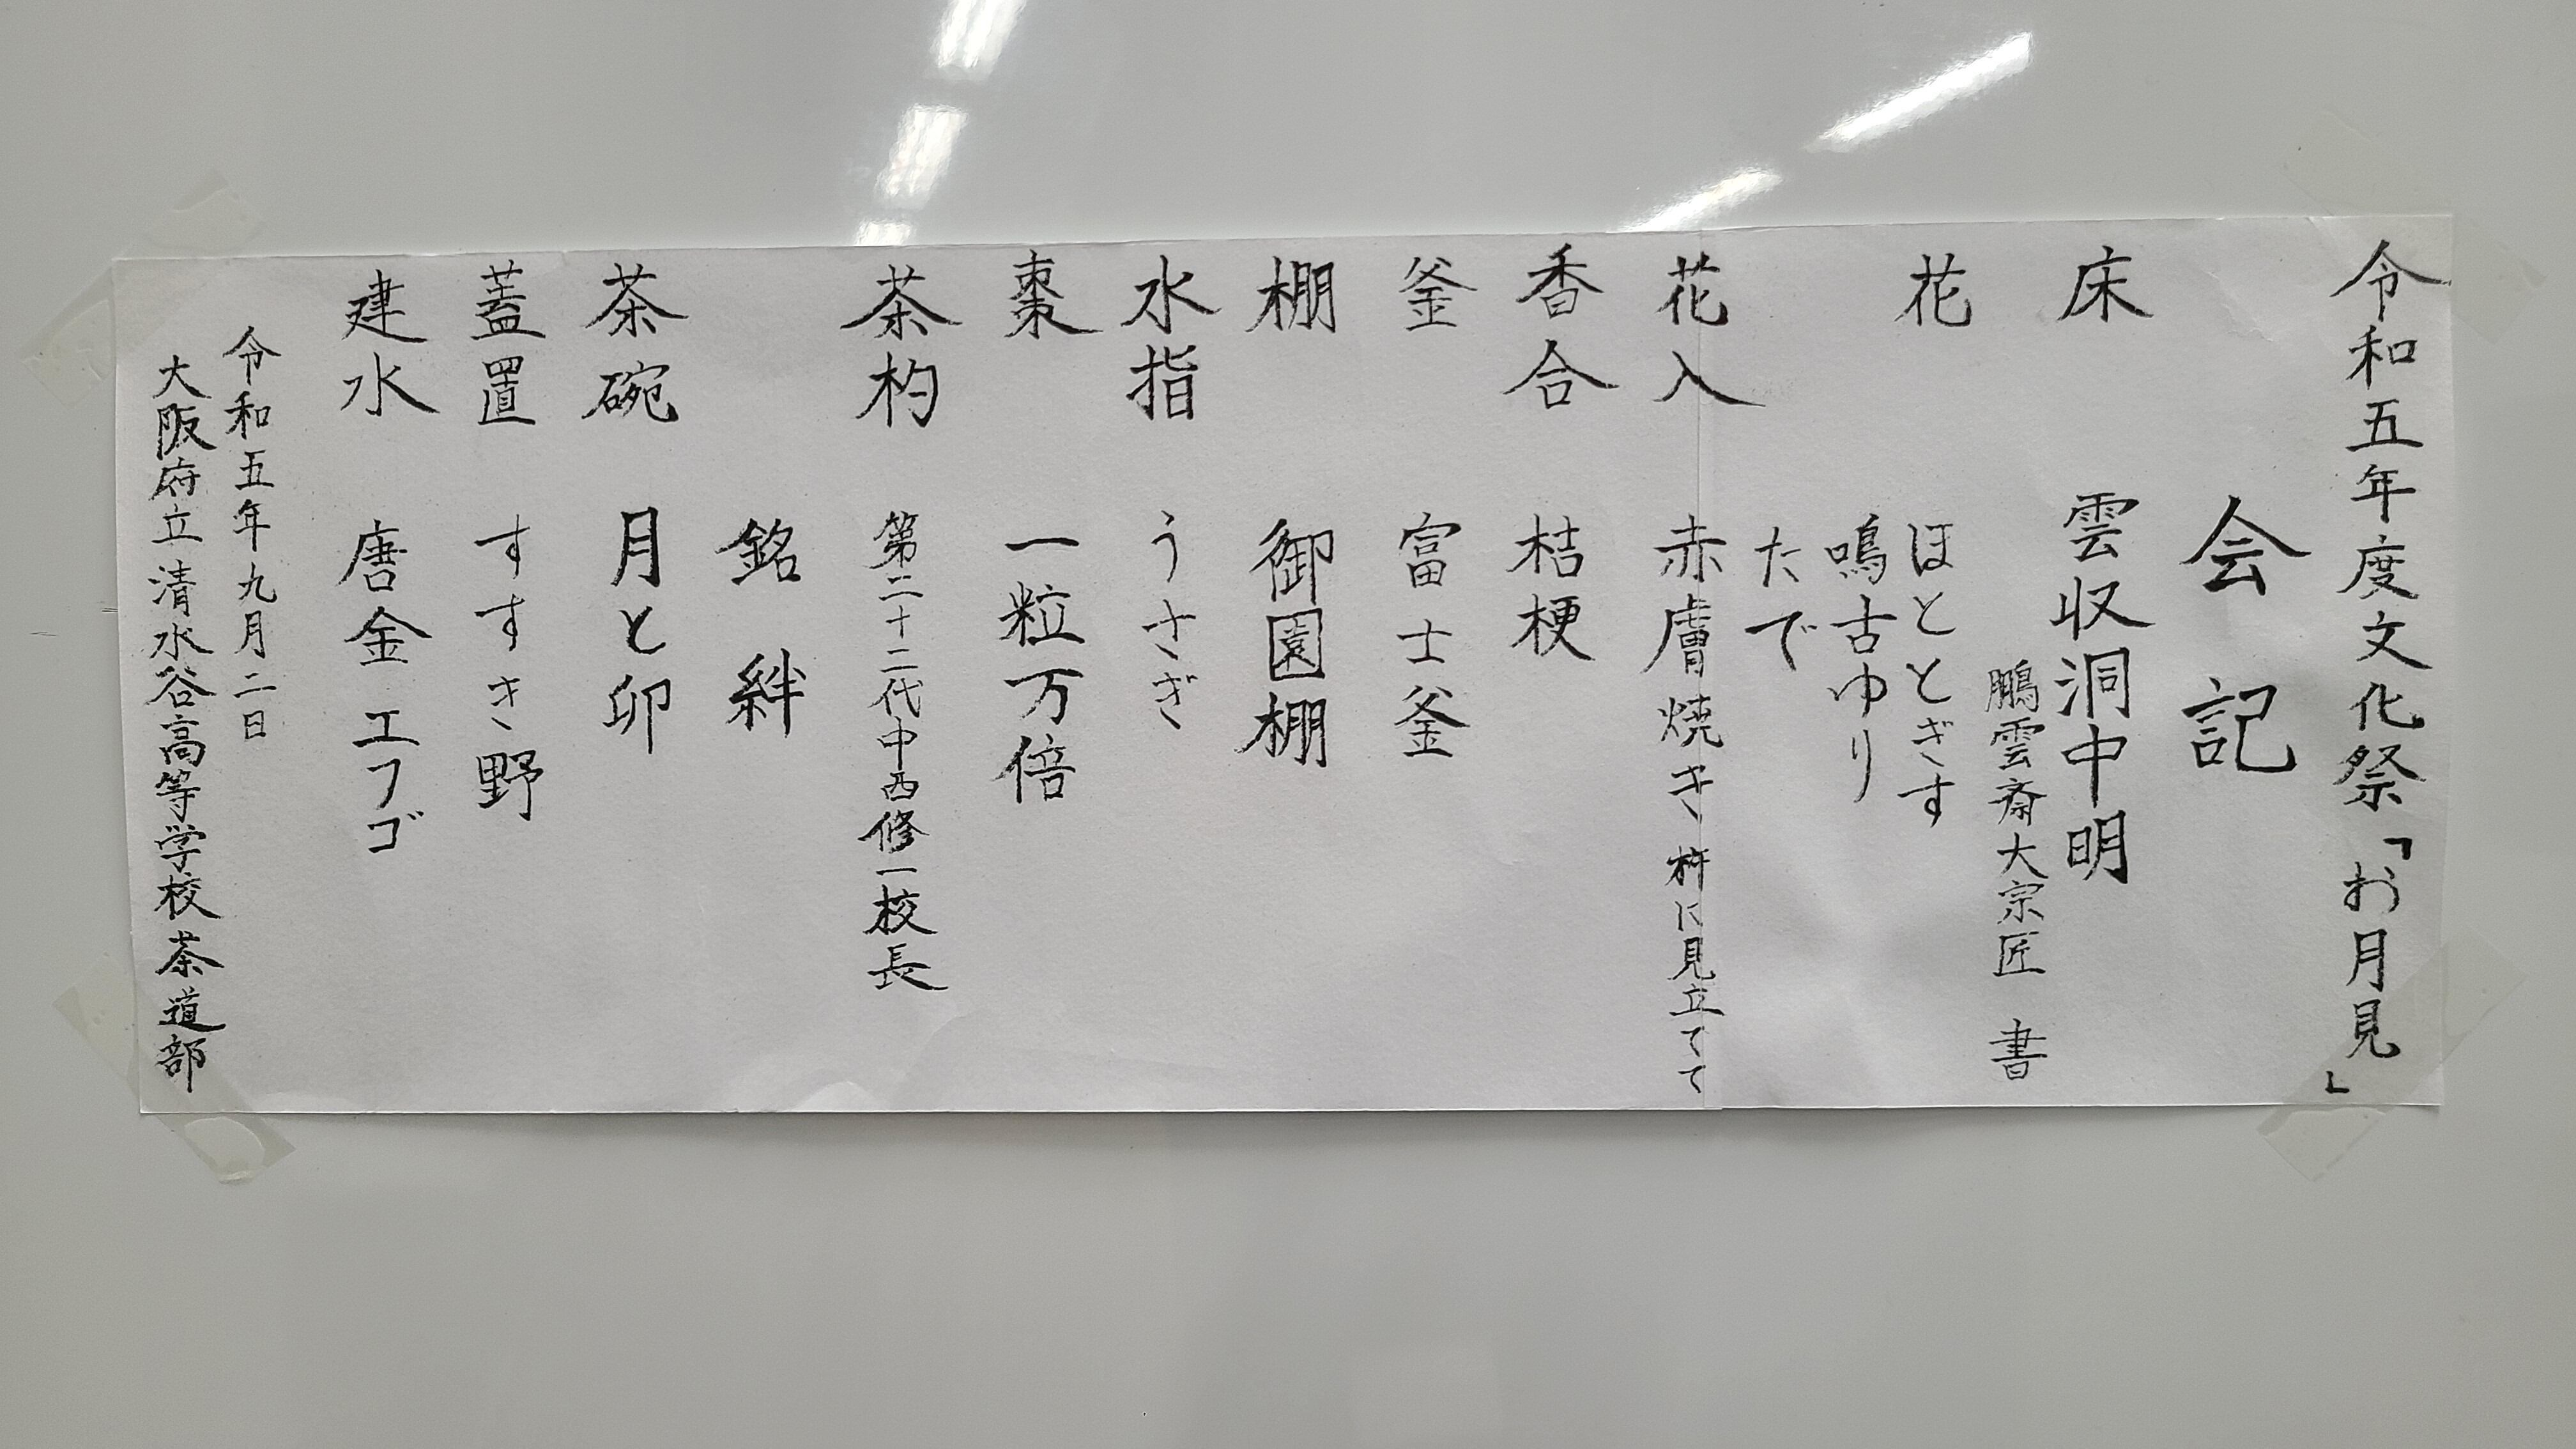 令和五年度文化祭「お月見」
会記
床 雲収洞中明
鵬雲斎大宗匠 書
花 ほととぎす
鳴古ゆり
たで
花入 赤膚焼き 杵に見立てて
香合 桔梗
釜 富士釜
棚 御園棚
水指 うさぎ
棗 一粒万倍
茶杓 第二十二代中西修一校長
銘 絆
茶碗 月と卯
蓋置 すすき野
建水 唐金エフゴ
令和五年九月二日
大阪府立清水谷高等学校茶道部